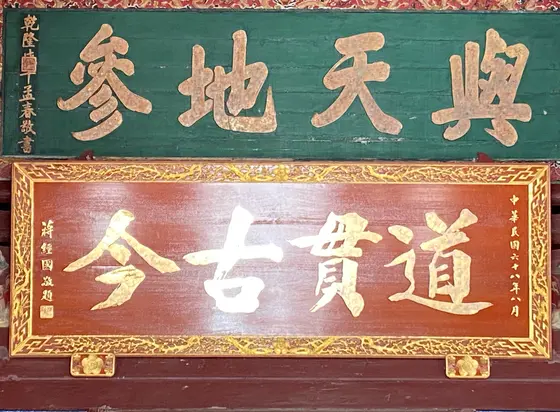 與天地參
乾隆年孟春敬書
中華民國六十八年八月
道貫古今
蔣經國敬題